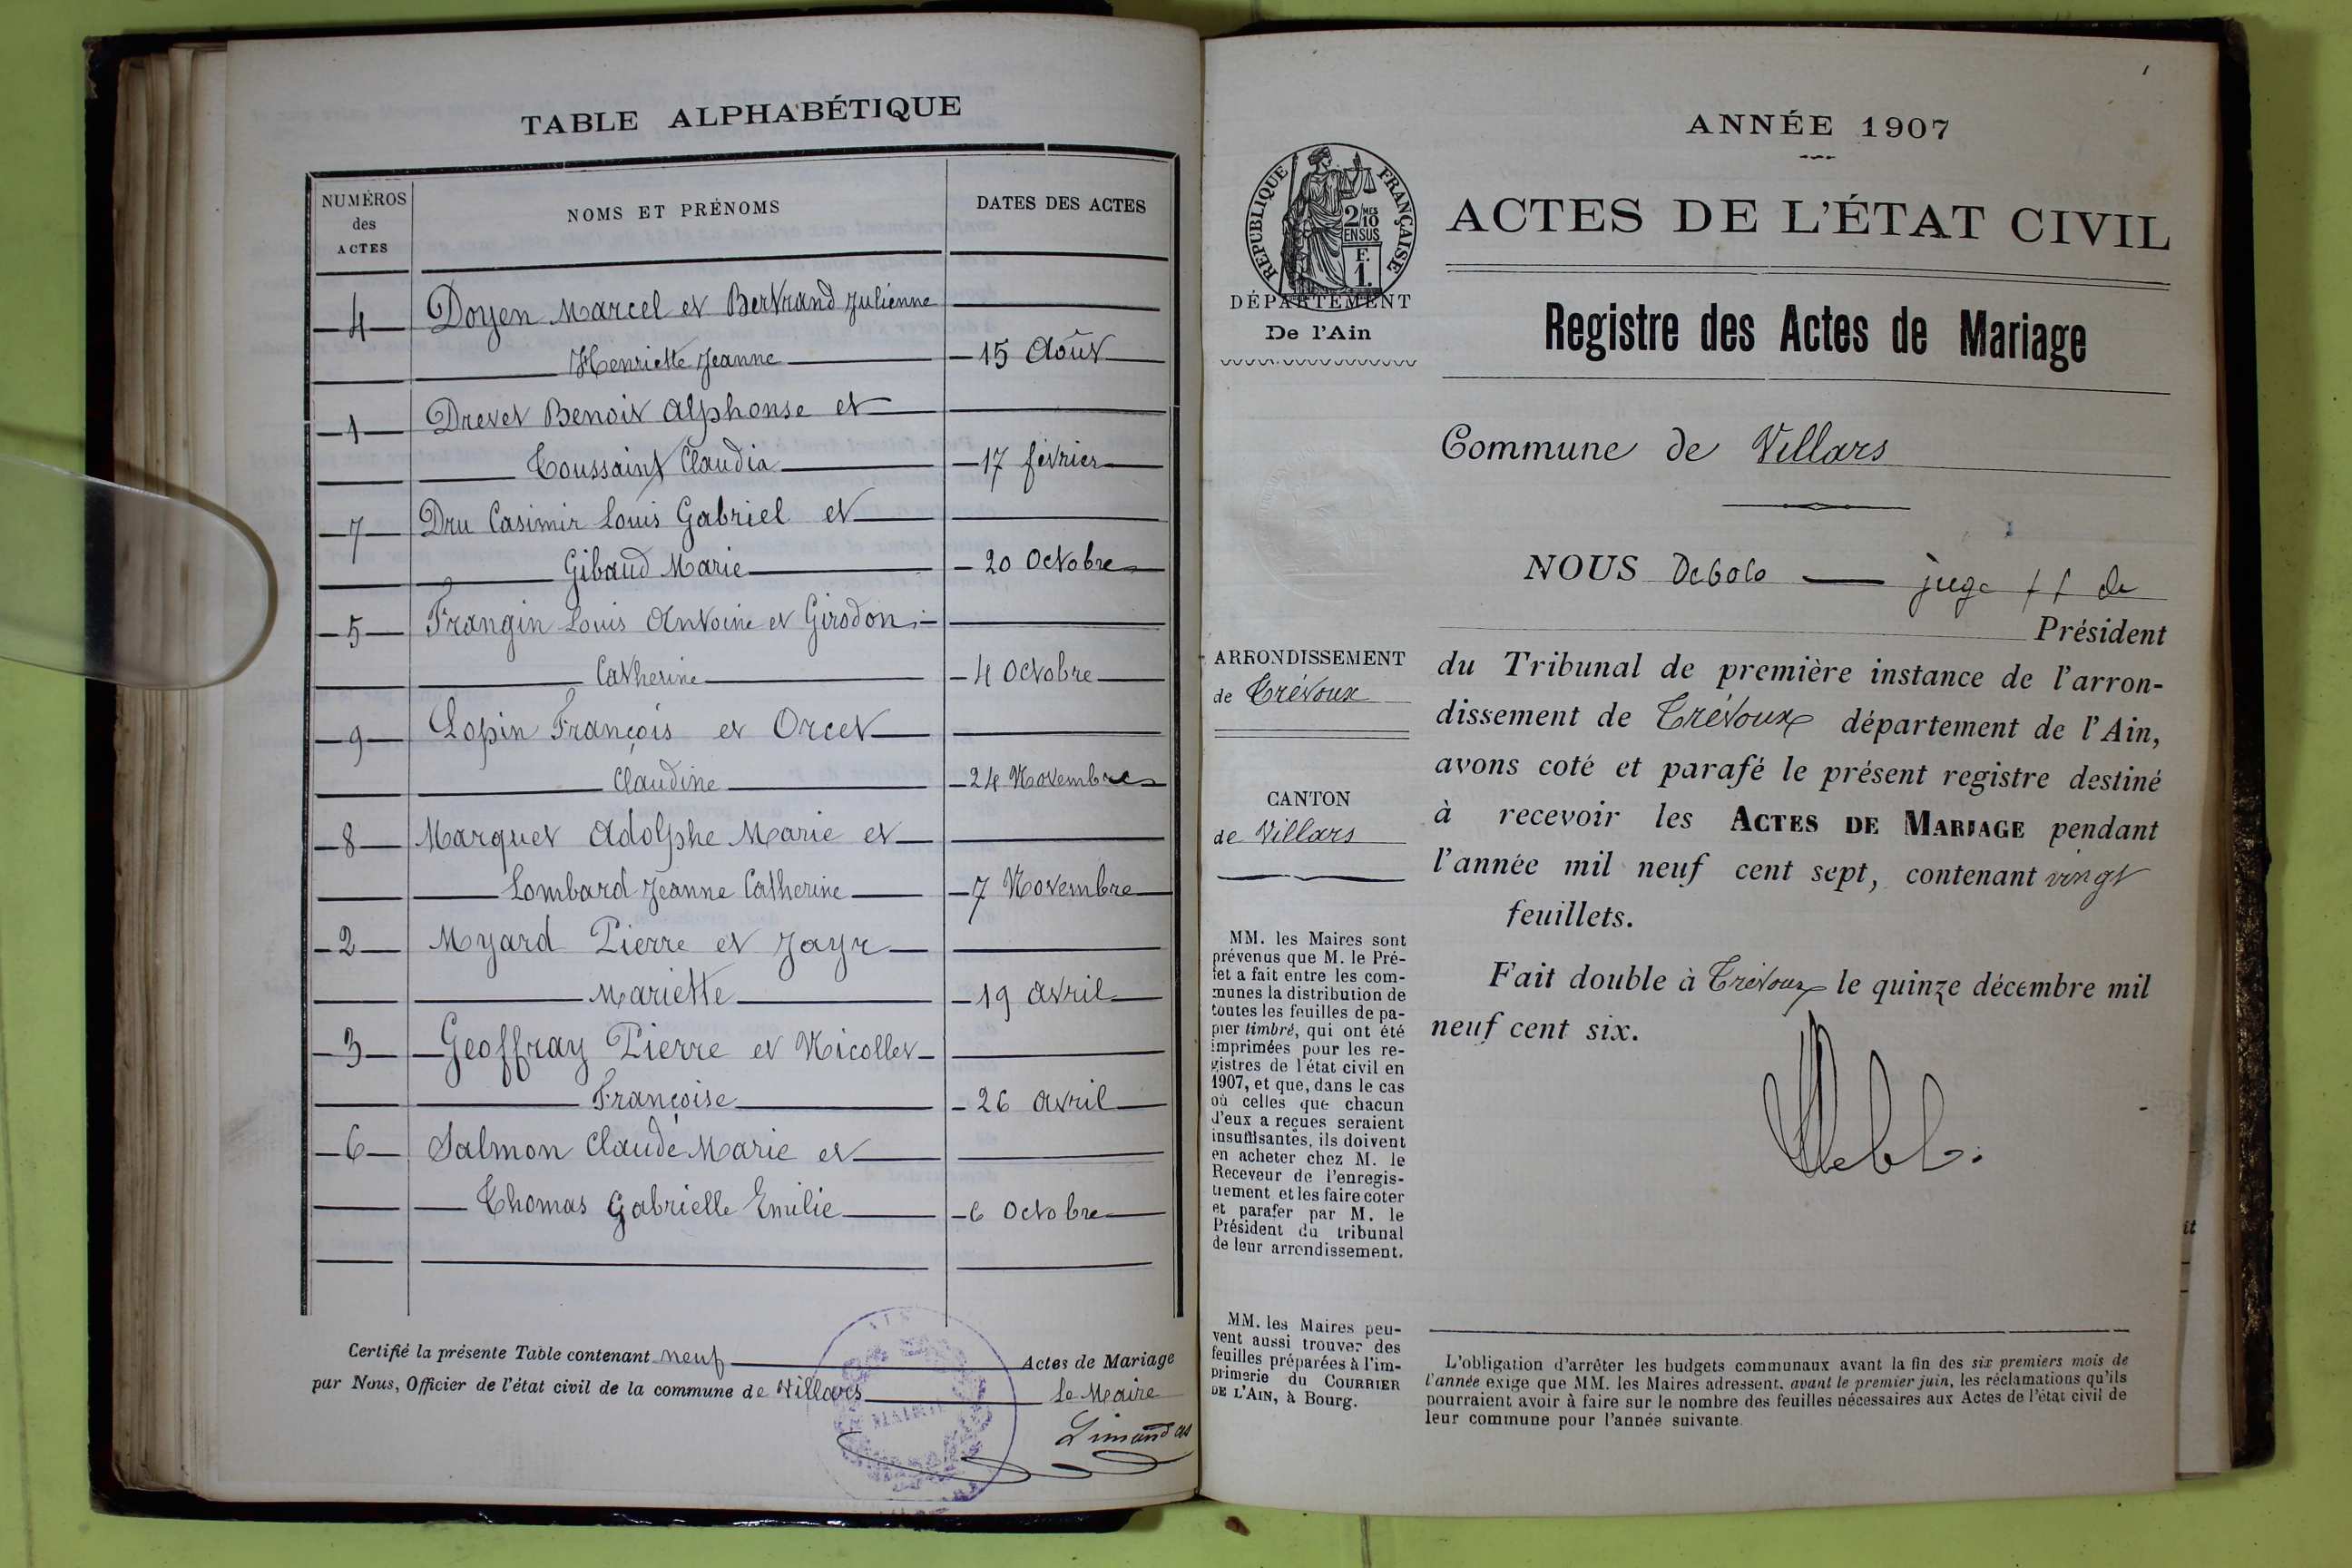 TABLE ALPHABÉTIQUE
NUMÉROS
des
ACTES
NOMS ET PRÉNOMS
DATES DES ACTES
4 Doyen Marcel et Bertrand Julienne
Henriette Jeanne 15 Août
1 Drevet Benoit Alphonse et
Toussaint Claudia 17 février
7 Dru Casimir Louis Gabriel et
Gibaud Marie 20 Octobre
5 Frangin Louis Antoine et Girodon
Catherine 4 Octobre
9 Lopin François et Orcet
Claudine 24 Novembre
8 Marquet Adolphe Marie et
Lombard Jeanne Catherine 7 Novembre
2 Myard Pierre et Jayr
Mariette 19 avril
3 Geoffray Pierre et Nicollet
Françoise 26 avril
6 Salmon Claude Marie et
Thomas Gabrielle Emilie 6 Octobre
Certifié la présente Table contenant neuf Actes de Mariage
par Nous, Officier de l'état civil de la commune de Villars Le Maire
MAIRIE
AIN
1
ANNÉE 1907
RÉPUBLIQUE FRANÇAISE
2/10 MES
EN SUS
F.
1.
DÉPARTEMENT
De l'Ain
ACTES DE L'ÉTAT CIVIL
Registre des Actes de Mariage
Commune de Villars
NOUS juge ff de
Président
ARRONDISSEMENT
de Trévoux
du Tribunal de première instance de l'arron-
dissement de Trévoux département de l'Ain,
avons coté et parafé le présent registre destiné
à recevoir les ACTES DE MARIAGE pendant
l'année mil neuf cent sept, contenant vingt
feuillets.
Fait double à Trévoux le quinze décembre mil
neuf cent six.
CANTON
de Villars
MM. les Maires sont
prévenus que M. le Pré-
fet a fait entre les com-
munes la distribution de
toutes les feuilles de pa-
pier timbré, qui ont été
imprimées pour les re-
gistres de l'état civil en
1907, et que, dans le cas
où celles que chacun
d'eux a reçues seraient
insuffisantes, ils doivent
en acheter chez M. le
Receveur de l'enregis-
trement et les faire coter
et parafer par M. le
Président du tribunal
de leur arrondissement.
MM. les Maires peu-
vent aussi trouver des
feuilles préparées à l'im-
primerie du COURRIER
DE L'AIN, à Bourg.
L'obligation d'arrêter les budgets communaux avant la fin des six premiers mois de
l'année exige que MM. les Maires adressent, avant le premier juin, les réclamations qu'ils
pourraient avoir à faire sur le nombre des feuilles nécessaires aux Actes de l'état civil de
leur commune pour l'année suivante.